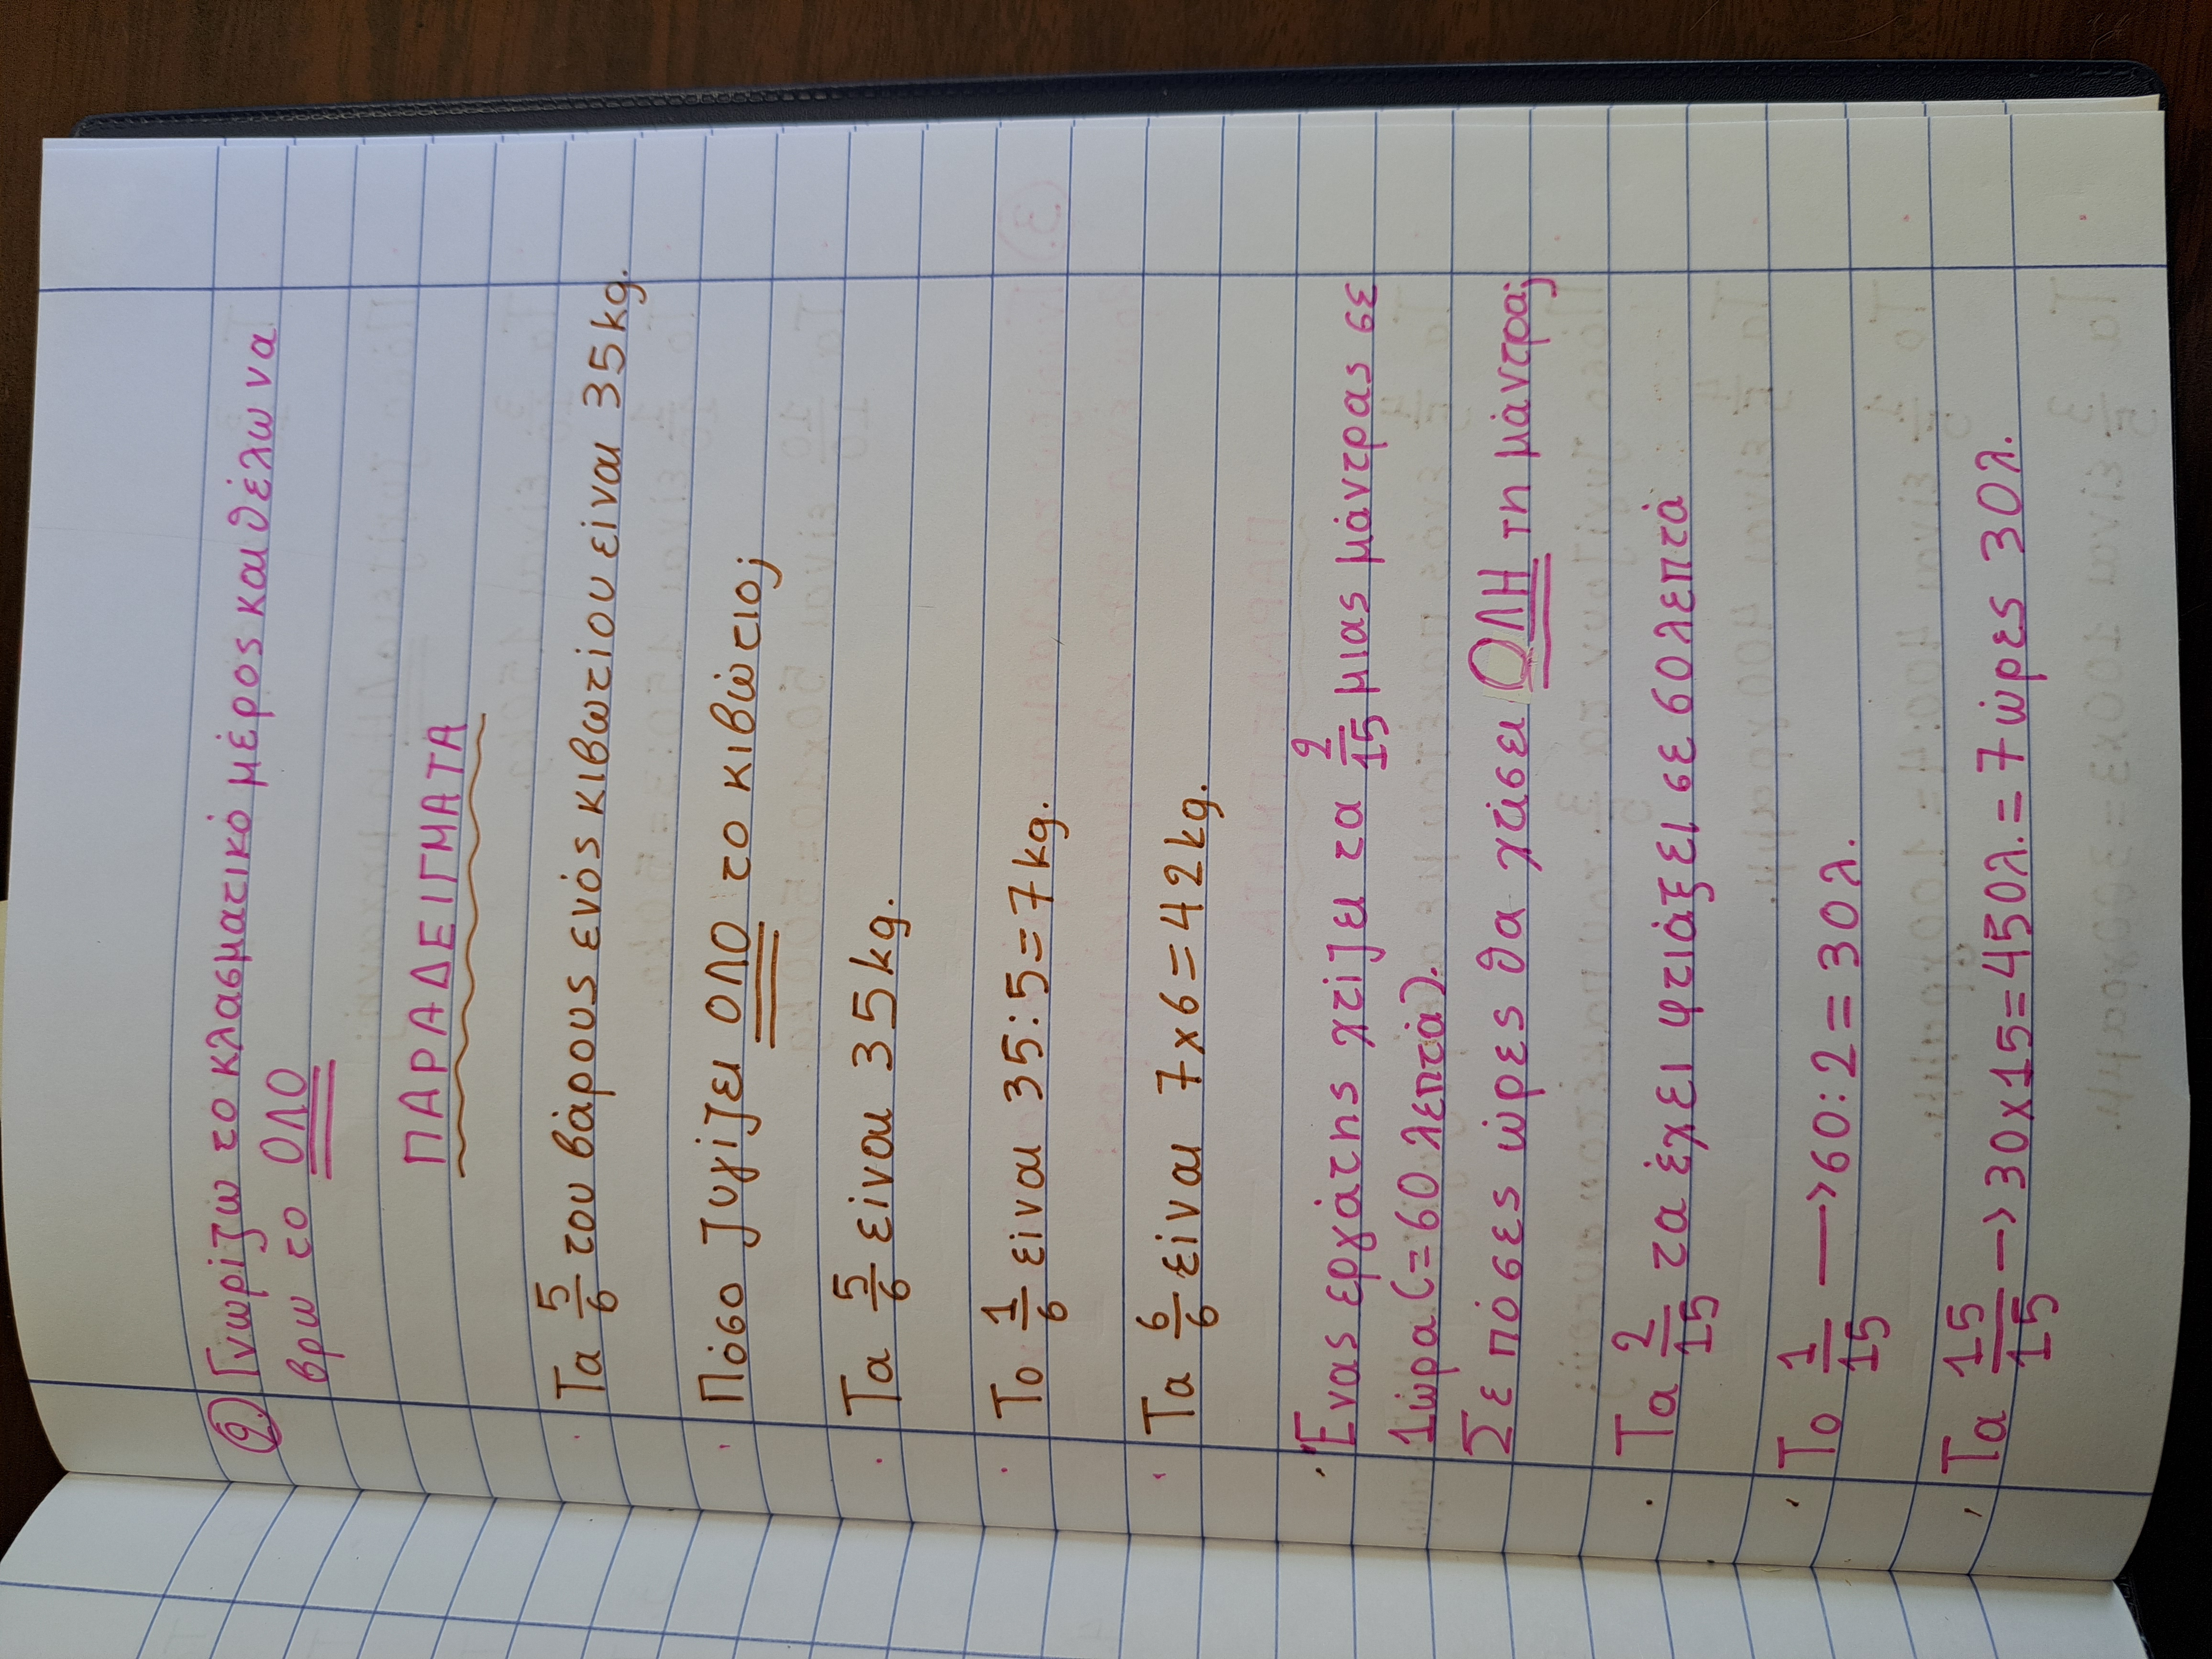 2. Γνωρίζω το κλασματικό μέρος και θέλω να
βρω το ΟΛΟ
ΠΑΡΑΔΕΙΓΜΑΤΑ
Τα 5/6 του βάρους ενός κιβωτίου είναι 35kg.
Πόσο ζυγίζει ΟΛΟ το κιβώτιο;
Τα 5/6 είναι 35kg.
Το 1/6 είναι 35:5=7kg.
Τα 6/6 είναι 7x6=42kg.
Ένας εργάτης χτίζει τα 2/15 μιας μάντρας σε
1ώρα (=60 λεπτά).
Σε πόσες ώρες θα χτίσει ΟΛΗ τη μάντρα;
Τα 2/15 τα έχει φτιάξει σε 60λεπτά
Το 1/15 → 60:2=30λ.
Τα 15/15 → 30x15=450λ.=7ώρες 30λ.